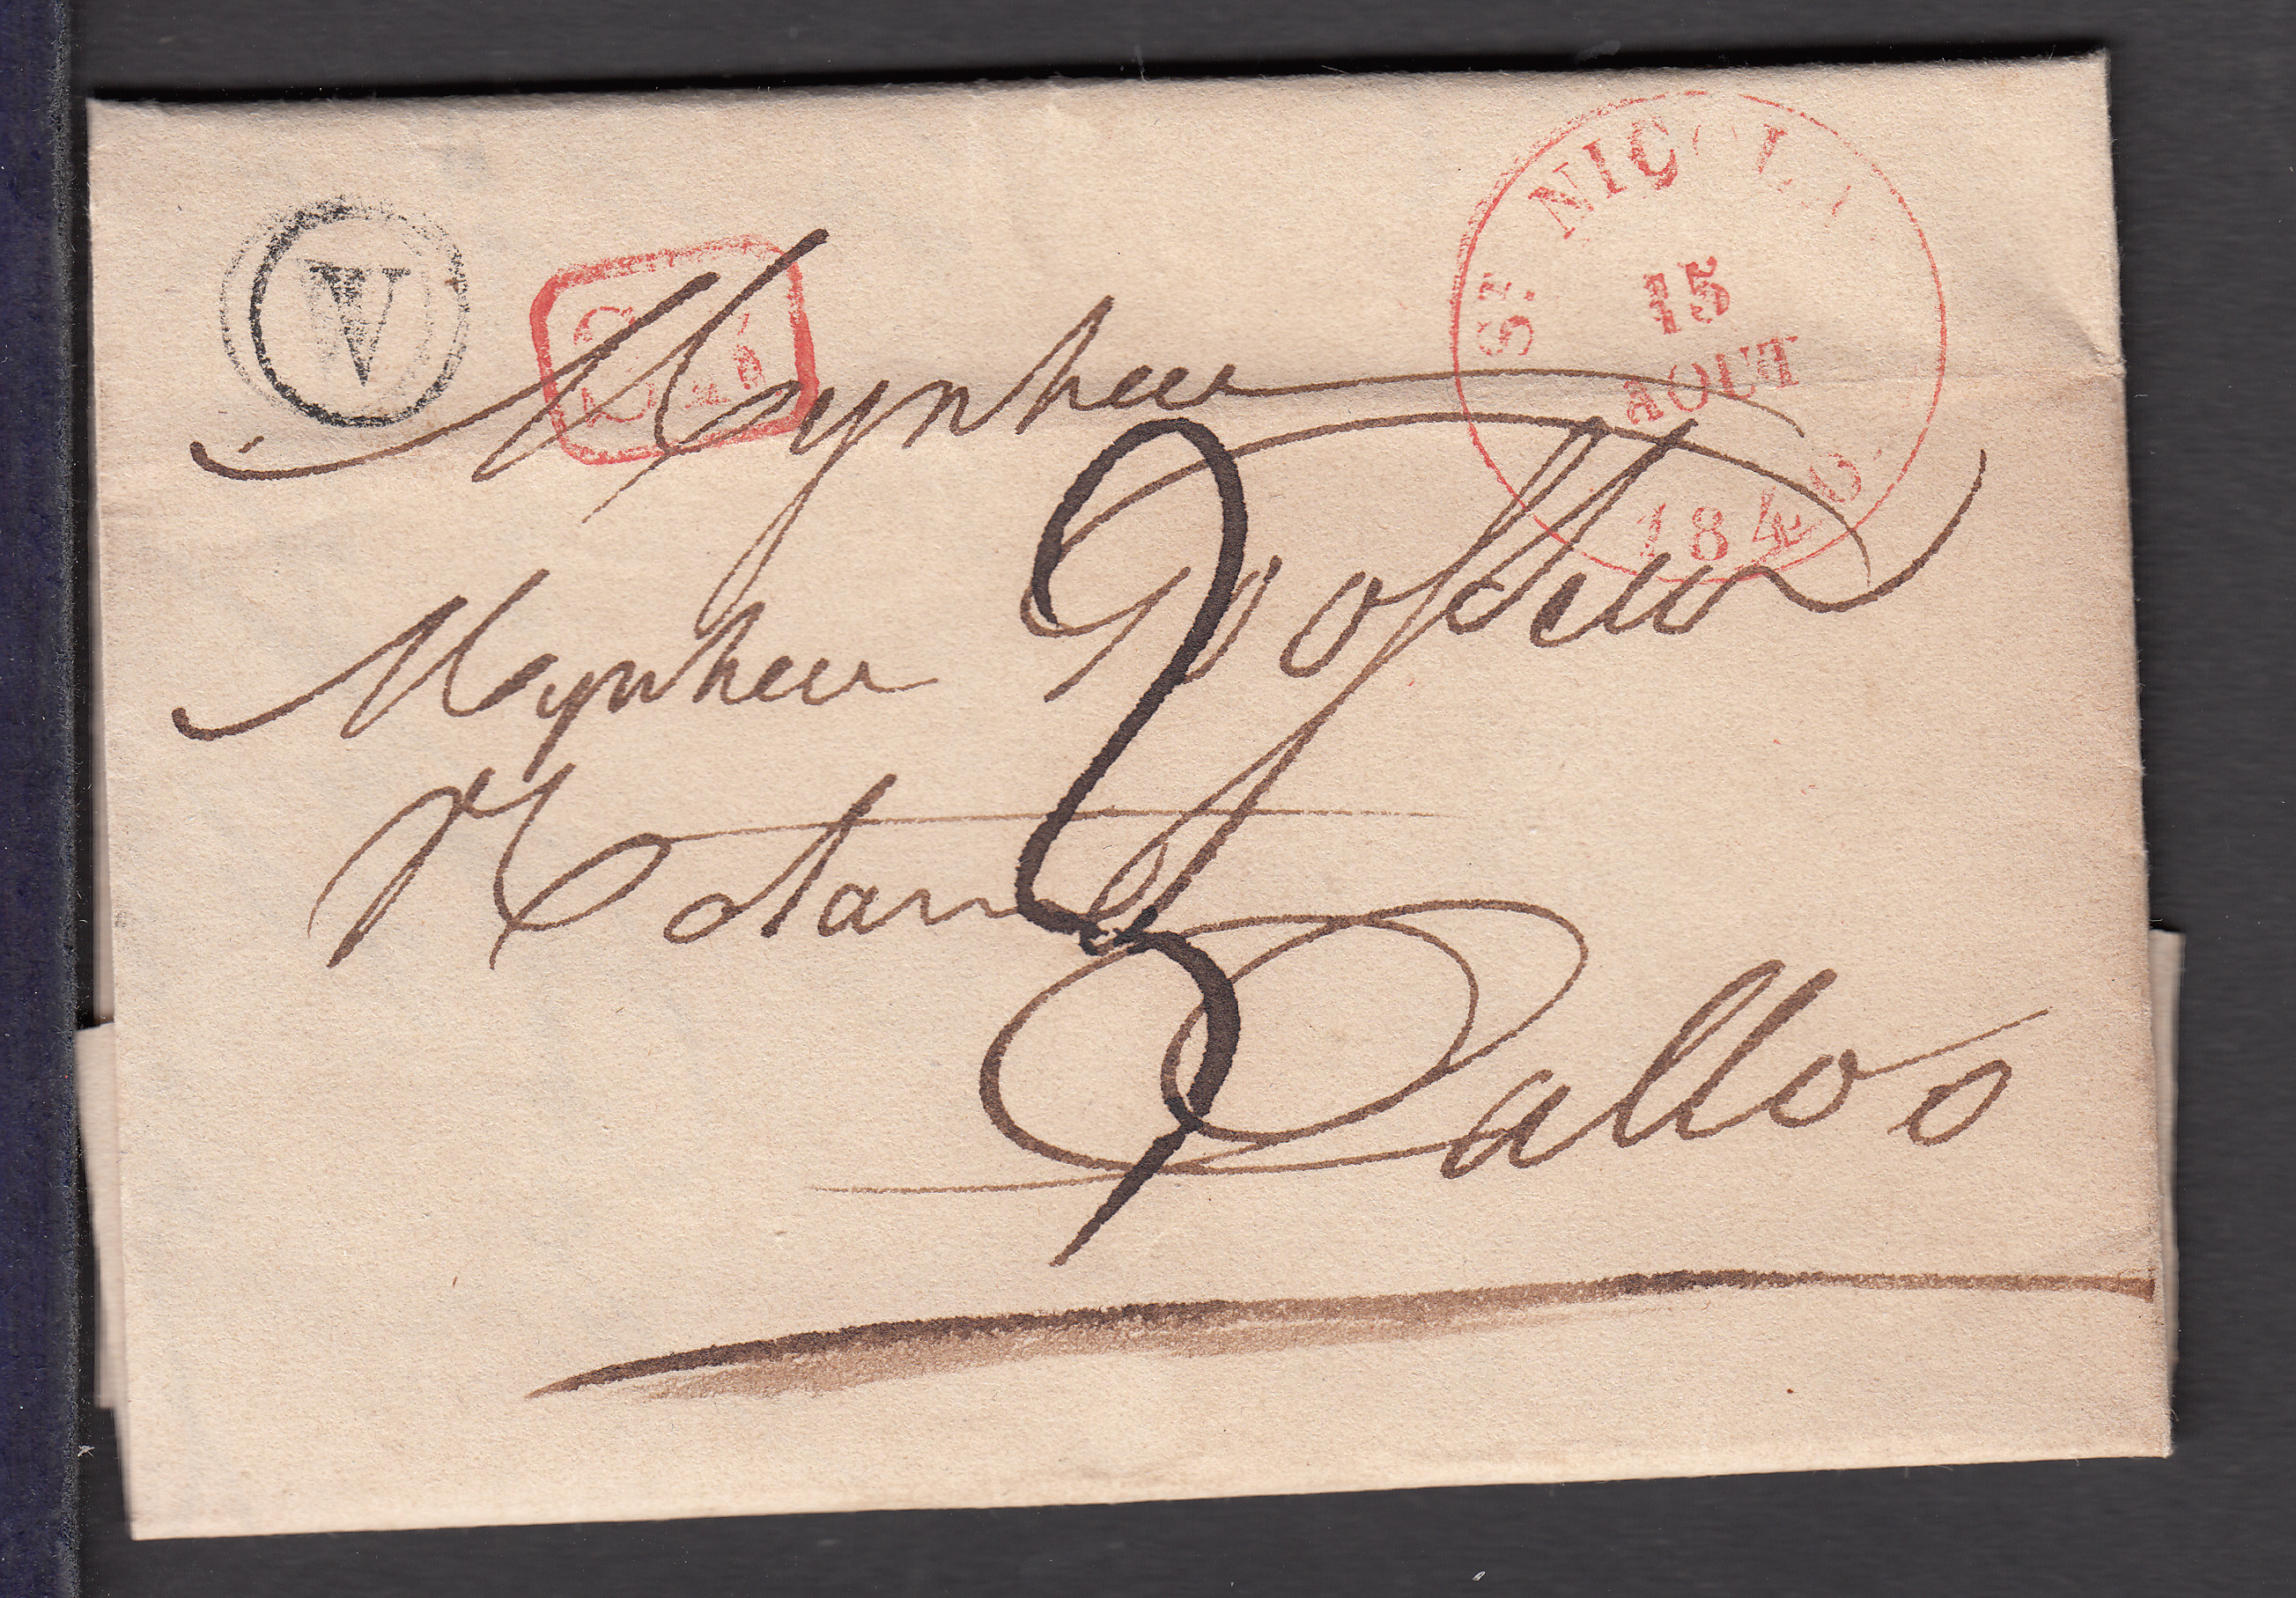 ST. NICOLAS
15
AOUT
1840.
V
Mynheer
Mynheer
Notaris
Calloo
3